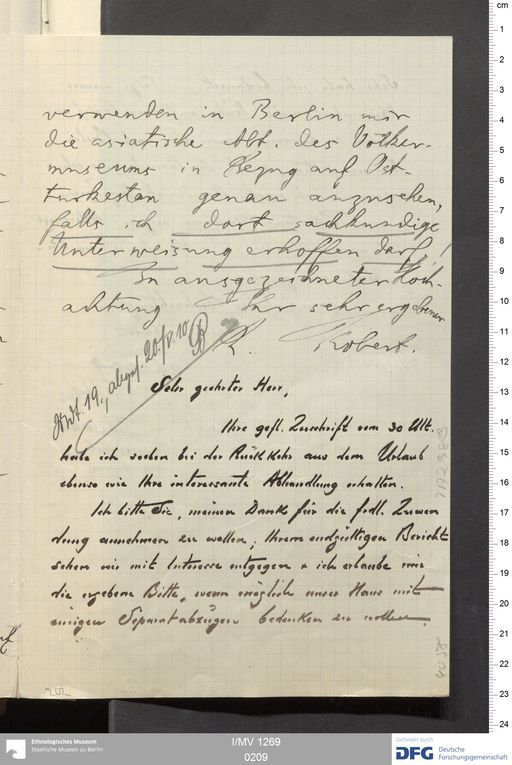 verwenden in Berlin mir
die asiatische Abt. des Völker-
museums in Bezug auf Ost-
turkestan genau anzusehen,
falls ich dort sachkundige
Unterweisung erhoffen darf!
In ausgezeichneter Hoch-
achtung Ihr sehr ergebener
R. Robert.
Antw. 19., abges. 20./V. 10
Sehr geehrter Herr,
Ihre gefl. Zuschrift vom 30 Ult.
habe ich soeben bei der Rückkehr aus dem Urlaub
ebenso wie Ihre interessante Abhandlung erhalten.
Ich bitte Sie, meinen Dank für die frdl. Zuwen
dung annehmen zu wollen; Ihrem endgültigen Bericht
sehen wir mit Interesse entgegen & ich erlaube mir
die ergebene Bitte, wenn möglich unser Haus mit
einigen Separatabzügen bedenken zu wollen.
202
cm
1
2
3
4
5
6
7
8
9
10
11
12
13
14
15
16
17
18
19
20
21
22
23
24
Ethnologisches Museum
Staatliche Museen zu Berlin
I/MV 1269
0209
Gefördert durch
DFG Deutsche
Forschungsgemeinschaft